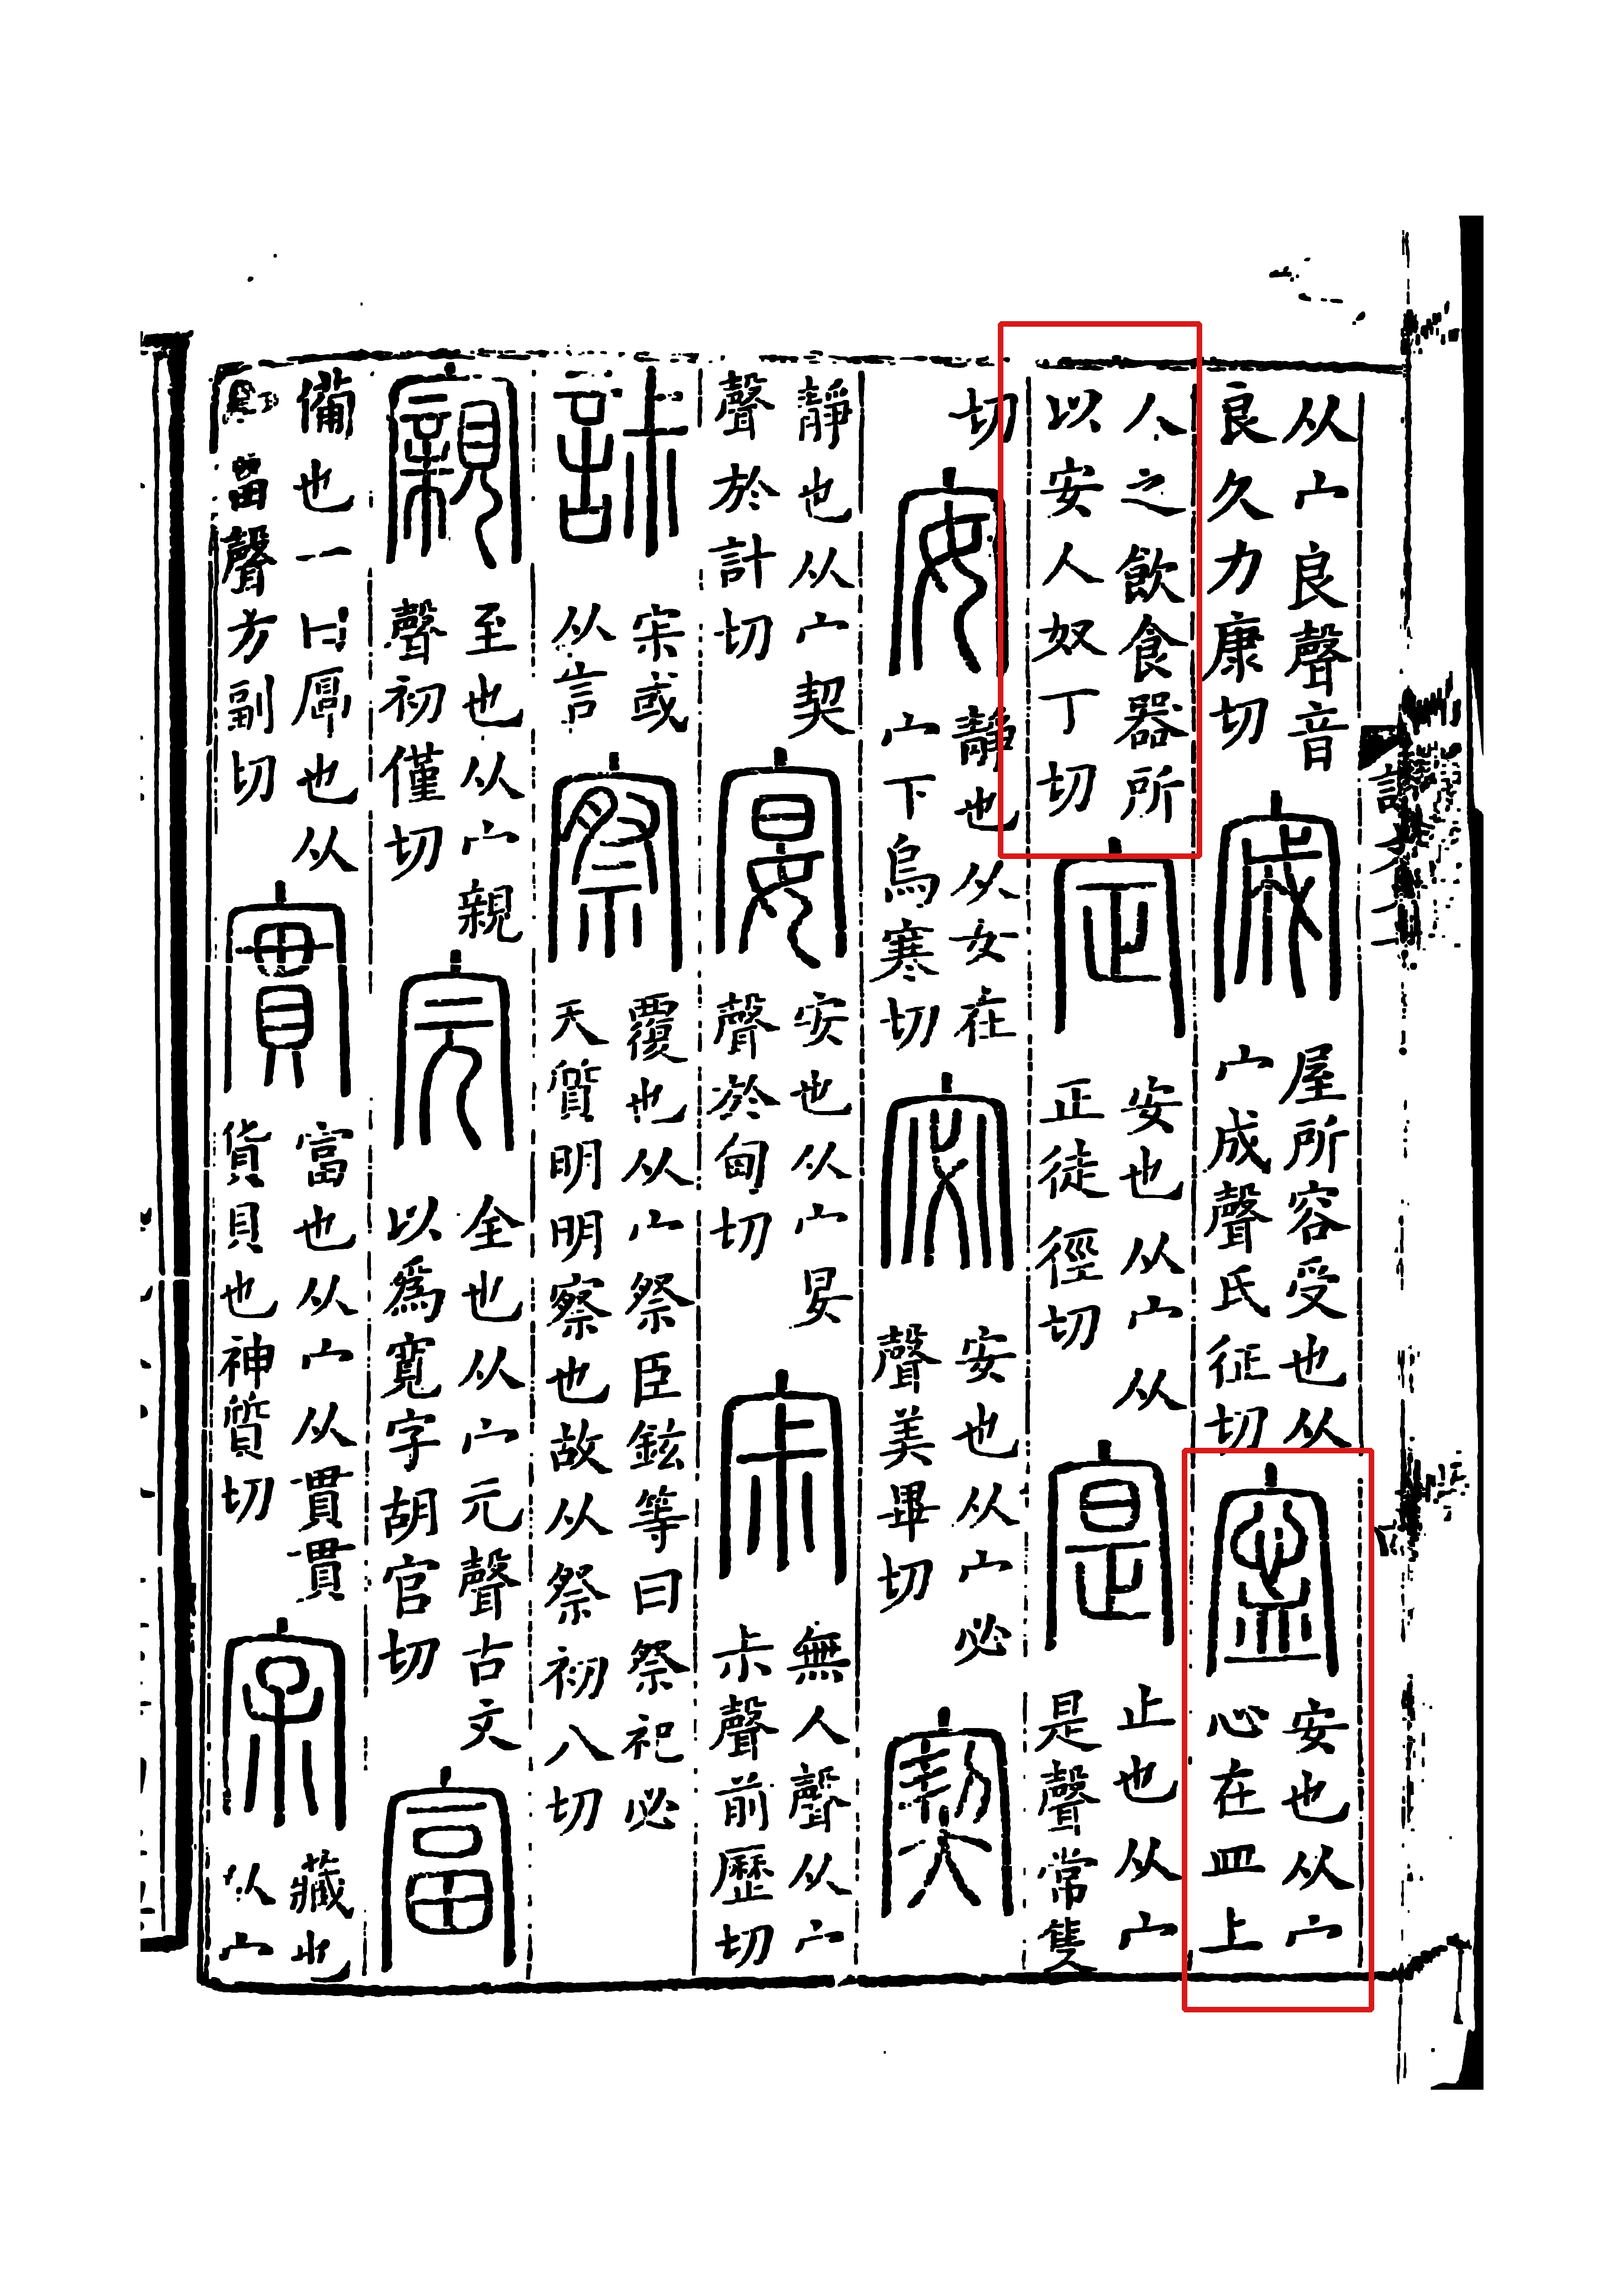 从宀良聲音良久力康切宬屋所容受也从宀成聲氏征切寍安也从宀心在皿上
人之飲食器所以安人奴丁切定安也从宀从正徒徑切寔止也从宀是聲常隻
切安靜也从女在宀下烏寒切宓安也从宀必聲美畢切窫
靜也从宀契聲於計切宴安也从宀妟聲於甸切宗無人聲从宀尗聲前歷切
諔宗或从言察覆也从宀祭臣鉉等曰祭祀必天質明明察也故从祭初八切
寴至也从宀親聲初僅切完全也从宀元聲古文以爲寬字胡官切富
備也一曰厚也从宀畐聲方副切實富也从宀从貫貫貨貝也神質切宲藏也从宀